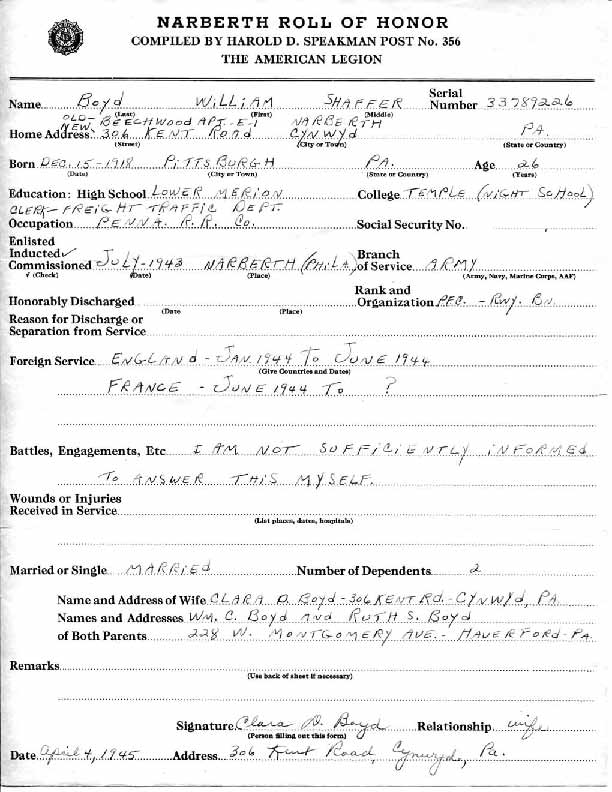 NARBERTH ROLL OF HONOR
COMPILED BY HAROLD D. SPEAKMAN POST No. 356
THE AMERICAN LEGION
Name Boyd WILLIAM SHAFFER Serial Number 33789226
(Last) (First) (Middle)
OLD- BEECHWOOD APT-E-1 NARBERTH
NEW
Home Address 306 KENT ROAD CYNWYD PA.
(Street) (City or Town) (State or Country)
Born DEC. 15-1918 PITTSBURGH PA. Age 26
(Date) (City or Town) (State or Country) (Years)
Education: High School LOWER MERION College TEMPLE (NIGHT SCHOOL)
CLERK-FREIGHT TRAFFIC DEPT.
Occupation PENNA. R.R. CO. Social Security No.
Enlisted
Inducted ✓ Branch
Commissioned JULY-1943 NARBERTH (PHILA.) of Service ARMY
√ (Check) (Date) (Place) (Army, Navy, Marine Corps, AAF)
Rank and
Honorably Discharged Organization PFC. - RWY. BN.
(Date (Place)
Reason for Discharge or
Separation from Service
Foreign Service ENGLAND - JAN. 1944 TO JUNE 1944
(Give Countries and Dates)
FRANCE - JUNE 1944 TO ?
Battles, Engagements, Etc I AM NOT SUFFICIENTLY INFORMED
TO ANSWER THIS MYSELF.
Wounds or Injuries
Received in Service
(List places, dates, hospitals)
Married or Single MARRIED Number of Dependents 2
Name and Address of Wife CLARA D. BOYD-306 KENT RD.-CYNWYD, PA
Names and Addresses WM. C. BOYD AND RUTH S. BOYD
of Both Parents 228 W. MONTGOMERY AVE.- HAVERFORD-PA.
Remarks
(Use back of sheet if necessary)
Signature Clara D. Boyd Relationship wife
(Person filling out this form)
Date April 4, 1945 Address 306 Kent Road, Cynwyd, Pa.